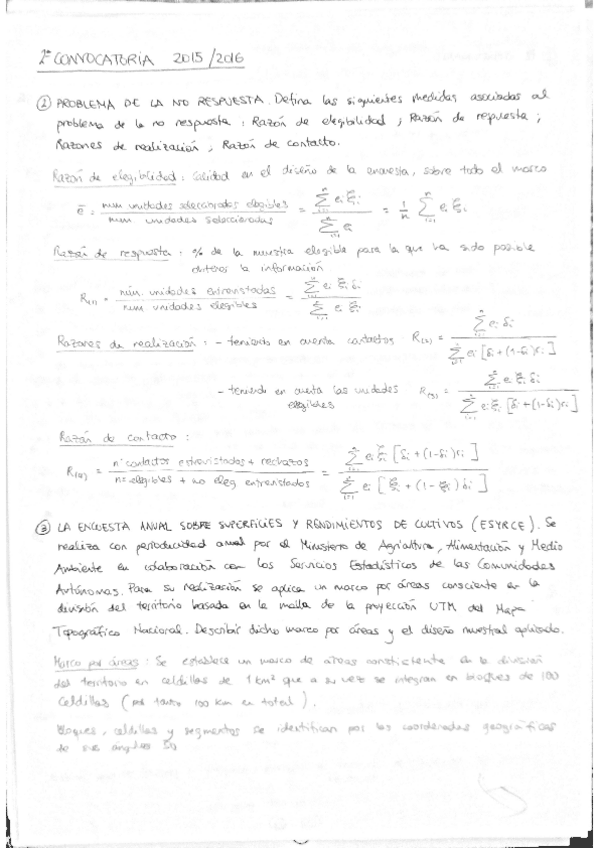 2ª CONVOCATORIA 2015/2016
① PROBLEMA DE LA NO RESPUESTA. Defina las siguientes medidas asociadas al
problema de la no respuesta: Razón de elegibilidad; Razón de repuesta;
Razones de realización; Razón de contacto.
Razón de elegibilidad: calidad en el diseño de la encuesta, sobre todo el marco
e̅ = num unidades seleccionadas elegibles / num unidades seleccionadas = Σ eᵢ ξᵢ / Σ eᵢ = 1/n Σ eᵢ ξᵢ
Razón de respuesta: % de la muestra elegible para la que ha sido posible
obtener la información
R₍₁₎ = núm. unidades entrevistadas / num unidades elegibles = Σ eᵢ ξᵢ δᵢ / Σ eᵢ ξᵢ
Razones de realización: - teniendo en cuenta contactos R₍₂₎ = Σ eᵢ δᵢ / Σ eᵢ [δᵢ + (1-δᵢ)cᵢ]
- teniendo en cuenta las unidades
elegibles R₍₃₎ = Σ eᵢ ξᵢ δᵢ / Σ eᵢ ξᵢ [δᵢ + (1-δᵢ)cᵢ]
Razón de contacto:
R₍₄₎ = nº contactos entrevistados + rechazos / nº elegibles + no eleg entrevistados = Σ eᵢ ξᵢ [δᵢ + (1-δᵢ)cᵢ] / Σ eᵢ [ξᵢ + (1-ξᵢ)δᵢ]
② LA ENCUESTA ANUAL SOBRE SUPERFICIES Y RENDIMIENTOS DE CULTIVOS (ESYRCE). Se
realiza con periodicidad anual por el Ministero de Agricultura, Alimentación y Medio
Ambiente en colaboración con los Servicios Estadísticos de las Comunidades
Autónomas. Para su realización se aplica un marco por áreas consciente en la
división del territorio basada en la malla de la proyección UTM del Mapa
Topográfico Nacional. Describir dicho marco por áreas y el diseño muestral aplicado.
Marco por áreas: Se establece un marco de áreas consistente en la división
del territorio en celdillas de 1 km² que a su vez se integran en bloques de 100
celdillas (por tanto 100 km en total).
Bloques, celdillas y segmentos se identifican por las coordenadas geográficas
de sus ángulos SO